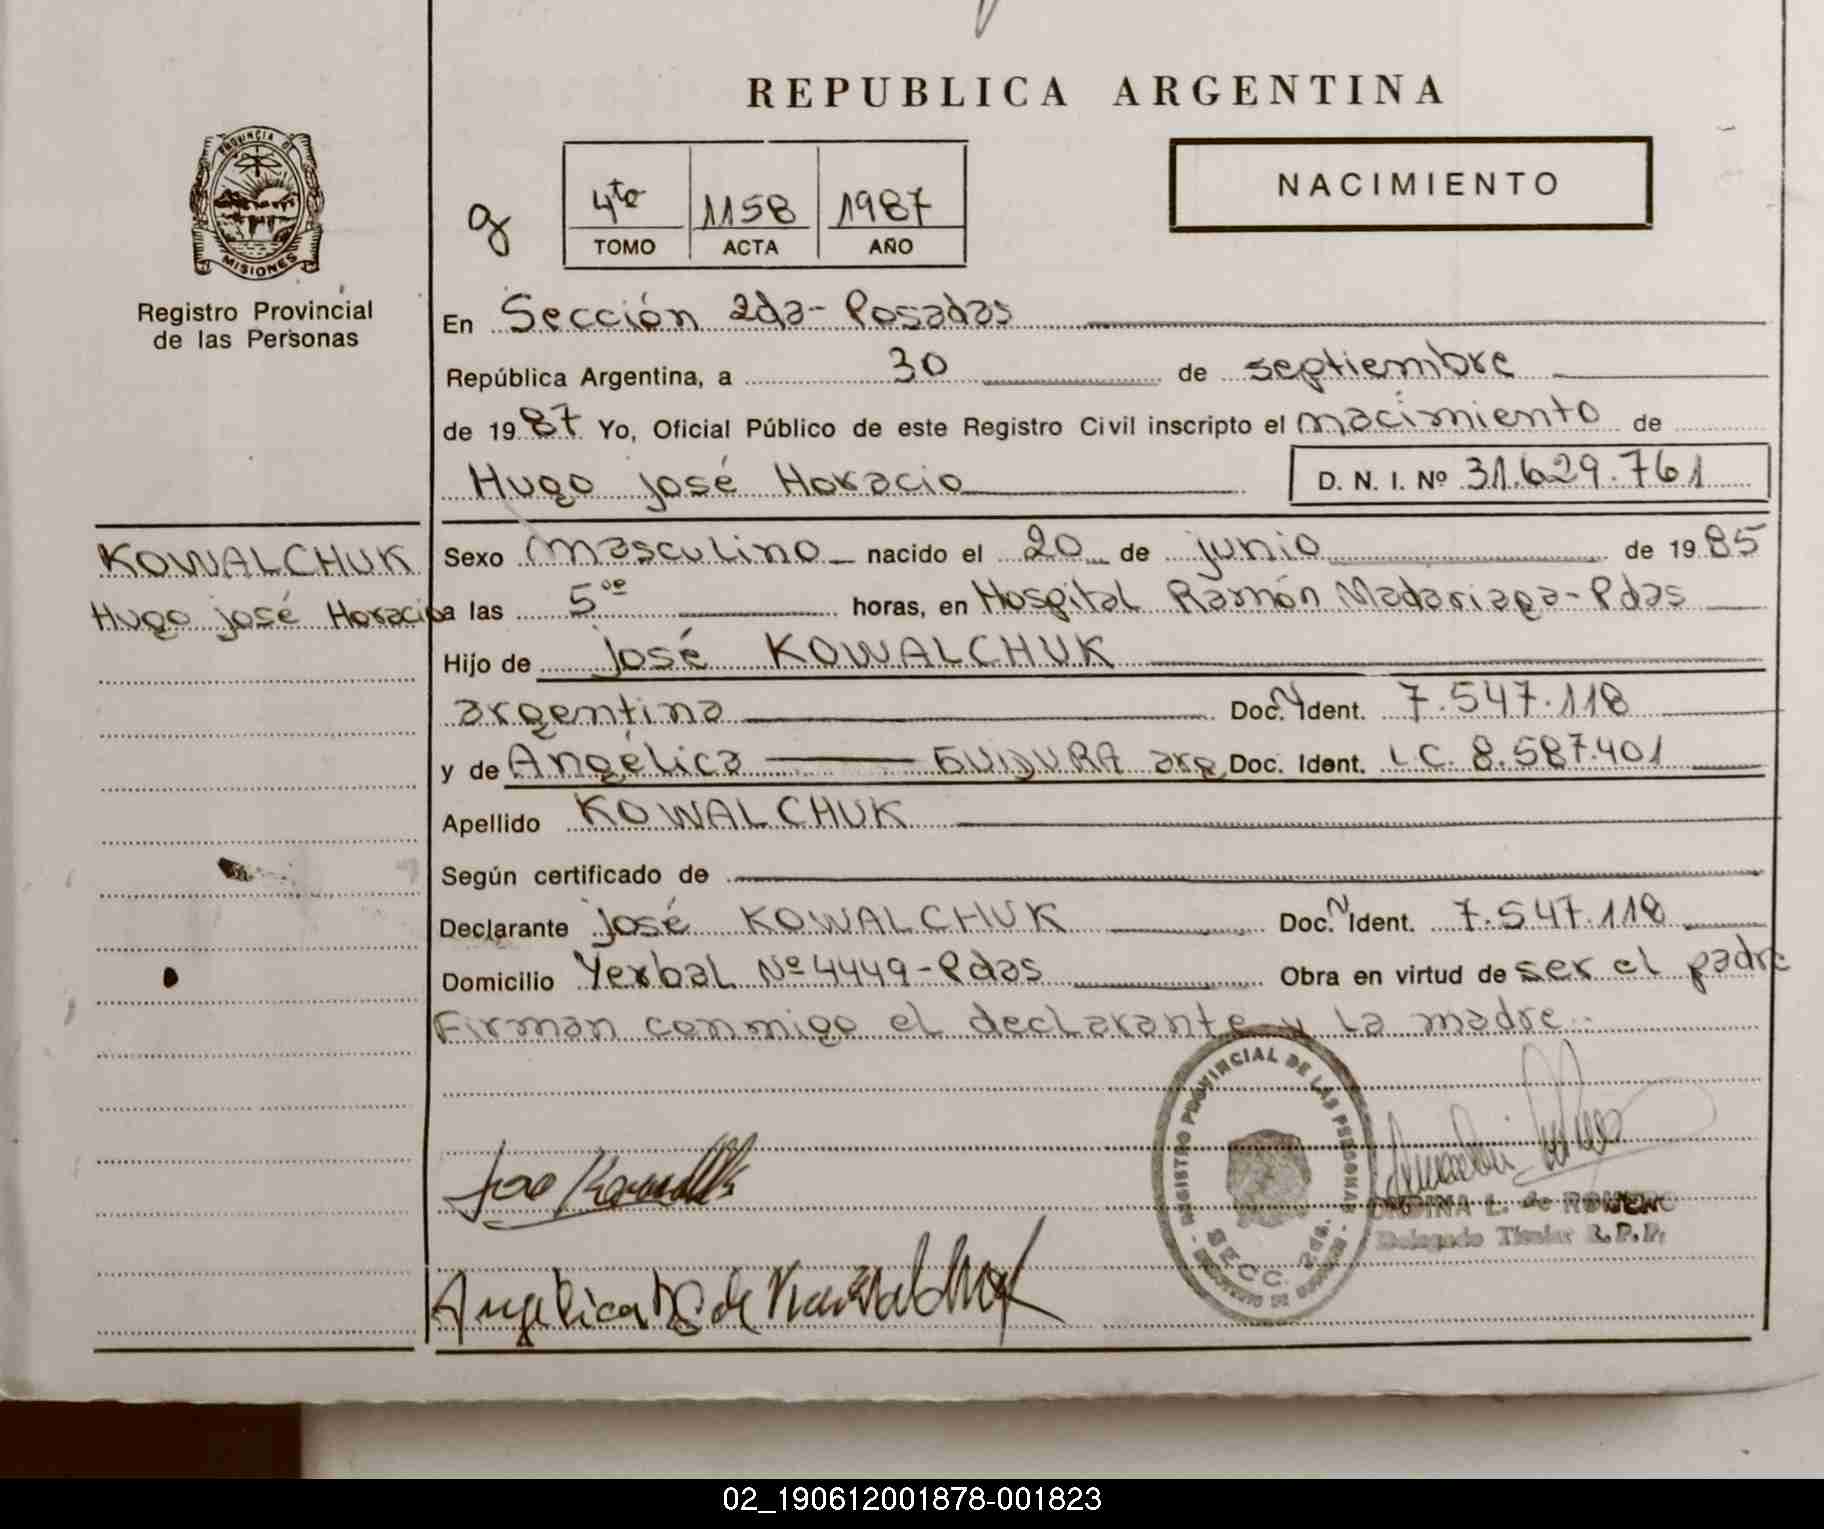 REPUBLICA ARGENTINA
PROVINCIA DE
MISIONES
Registro Provincial
de las Personas
4to 1158 1987
TOMO ACTA AÑO
NACIMIENTO
En Sección 2da- Posadas
República Argentina, a 30 de septiembre
de 1987 Yo, Oficial Público de este Registro Civil inscripto el nacimiento de
Hugo José Horacio D. N. I. Nº 31.629.761
KOWALCHUK
Hugo José Horacio
Sexo masculino nacido el 20 de junio de 1985
a las 5 horas, en Hospital Ramón Madariaga-Pdas
Hijo de José KOWALCHUK
argentino Doc. N Ident. 7.547.118
y de Angélica arg Doc. Ident. L.C. 8.587.401
Apellido KOWALCHUK
Según certificado de
Declarante José KOWALCHUK Doc. N Ident. 7.547.118
Domicilio Yerbal Nº 4449-Pdas Obra en virtud de ser el padre
Firman conmigo el declarante y la madre.
REGISTRO PROVINCIAL DE LAS PERSONAS
SECC. 2da.
L. de ROMERO
Delegado Titular R.P.P.
Angelica de Kowalchuk
02_190612001878-001823